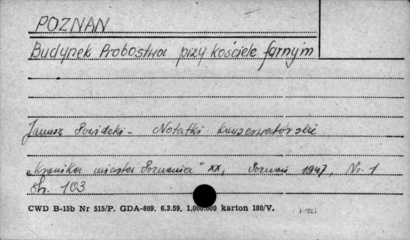 POZNAŃ
Budynek Probostwa przy kościele farnym
Janusz - Notatki konserwatorskie
"Kronika miasta Poznania" XX, Poznań 1947, Nr. 1
Str. 103
CWD B-15b Nr 515/P. GDA-809. 6.3.59, 1.000.000 karton 180/V.